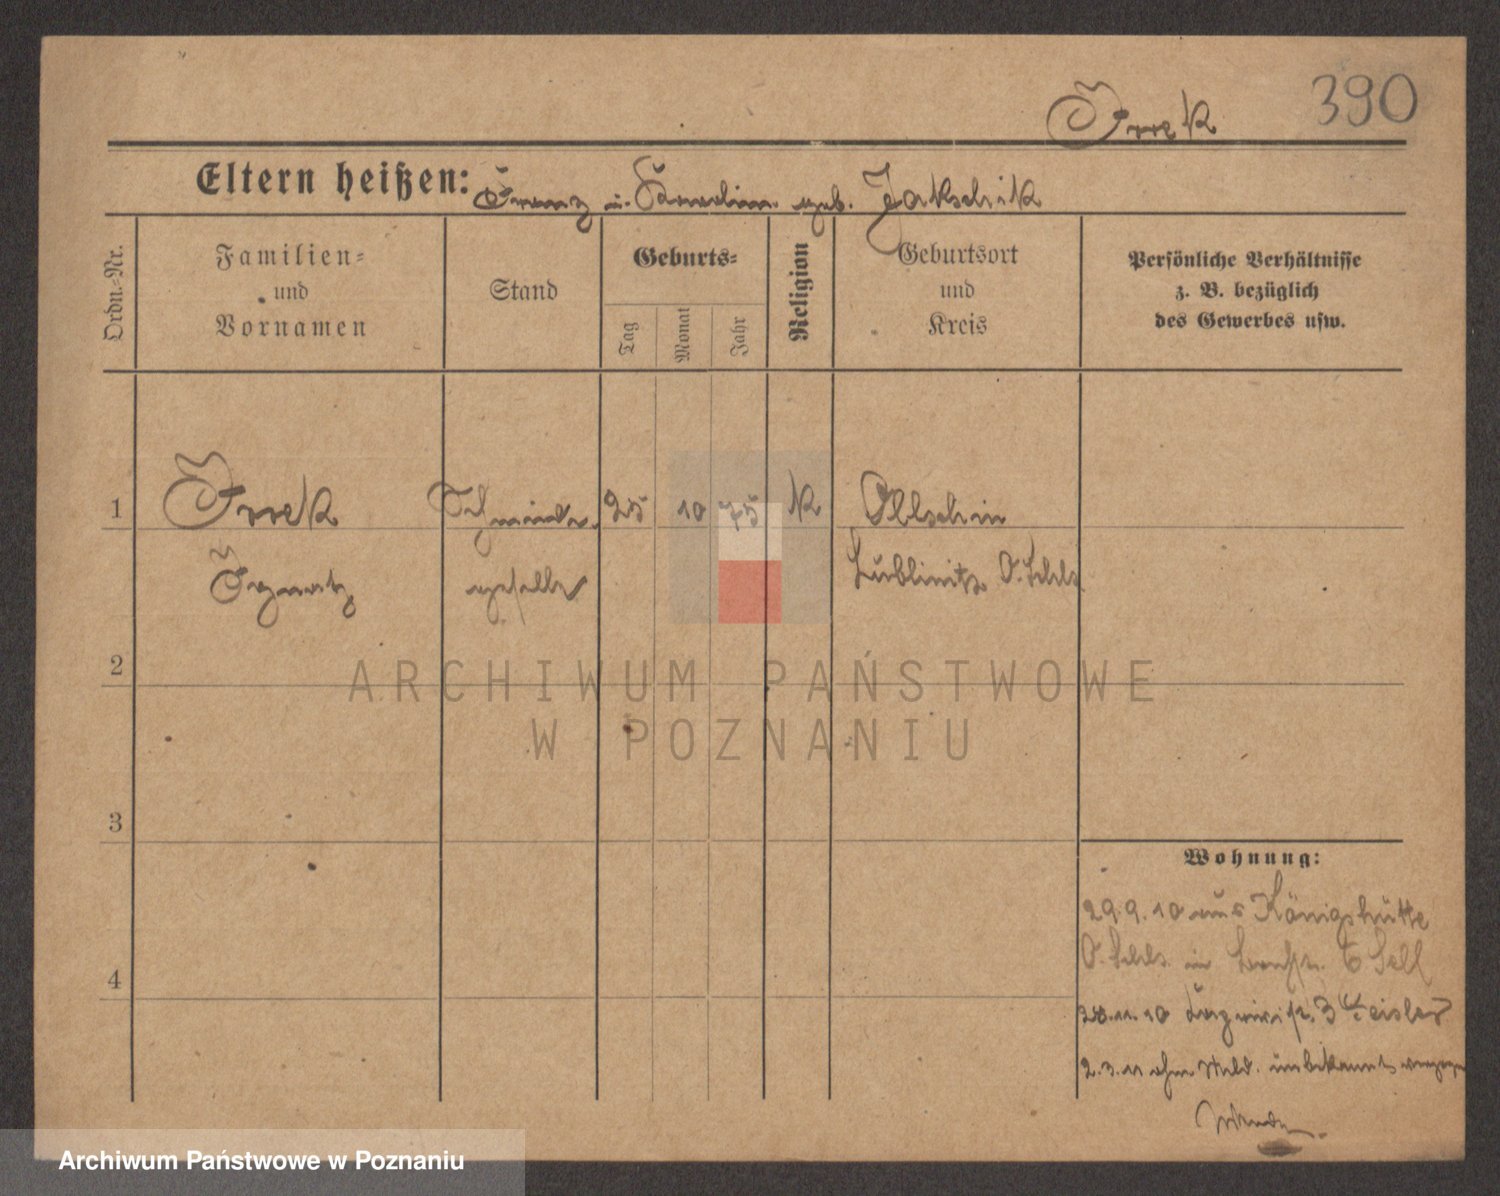 390
Jrrek
Eltern heißen: Franz u. Karolina geb. Jakschik
Ordn.-Nr.
Familien-
und
Vornamen
Stand
Geburts-
Tag
Monat
Jahr
Religion
Geburtsort
und
Kreis
Persönliche Verhältnisse
z. B. bezüglich
des Gewerbes usw.
1
Jrrek
Schmiede
25
10
75
K
Ollschin
Ignatz
geselle
Lublinitz O. Schls
2
3
4
Wohnung:
29.9.10 aus Königshütte
O. Schls. in 6 Sell
10 3 Geisler
2.3.11 ohne Meld. unbekannt
ARCHIWUM PAŃSTWOWE
W POZNANIU
Archiwum Państwowe w Poznaniu